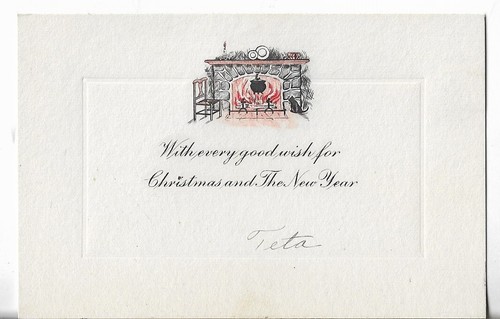 With every good wish for
Christmas and The New Year
Teta